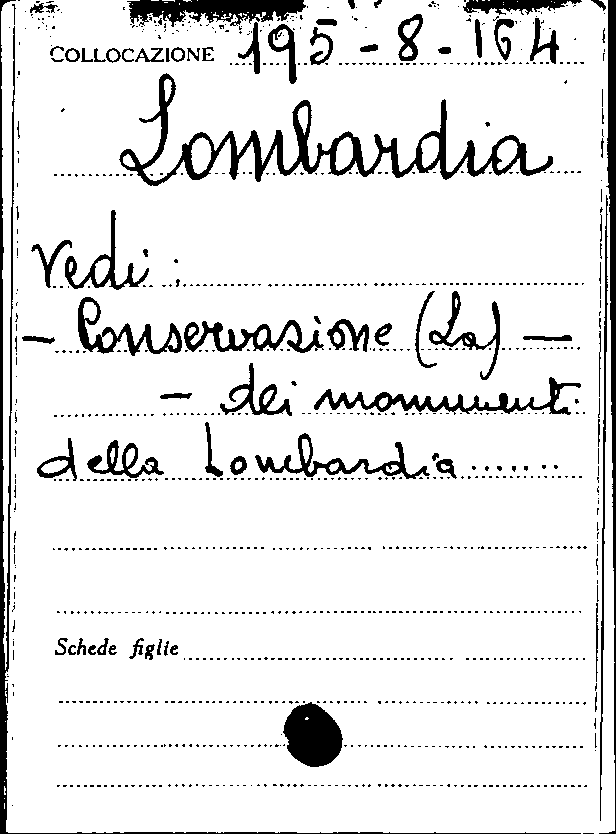 COLLOCAZIONE 195-8-164
Lombardia
Vedi:
- Conservazione (La) -
- dei monumenti
della Lombardia.......
Schede figlie